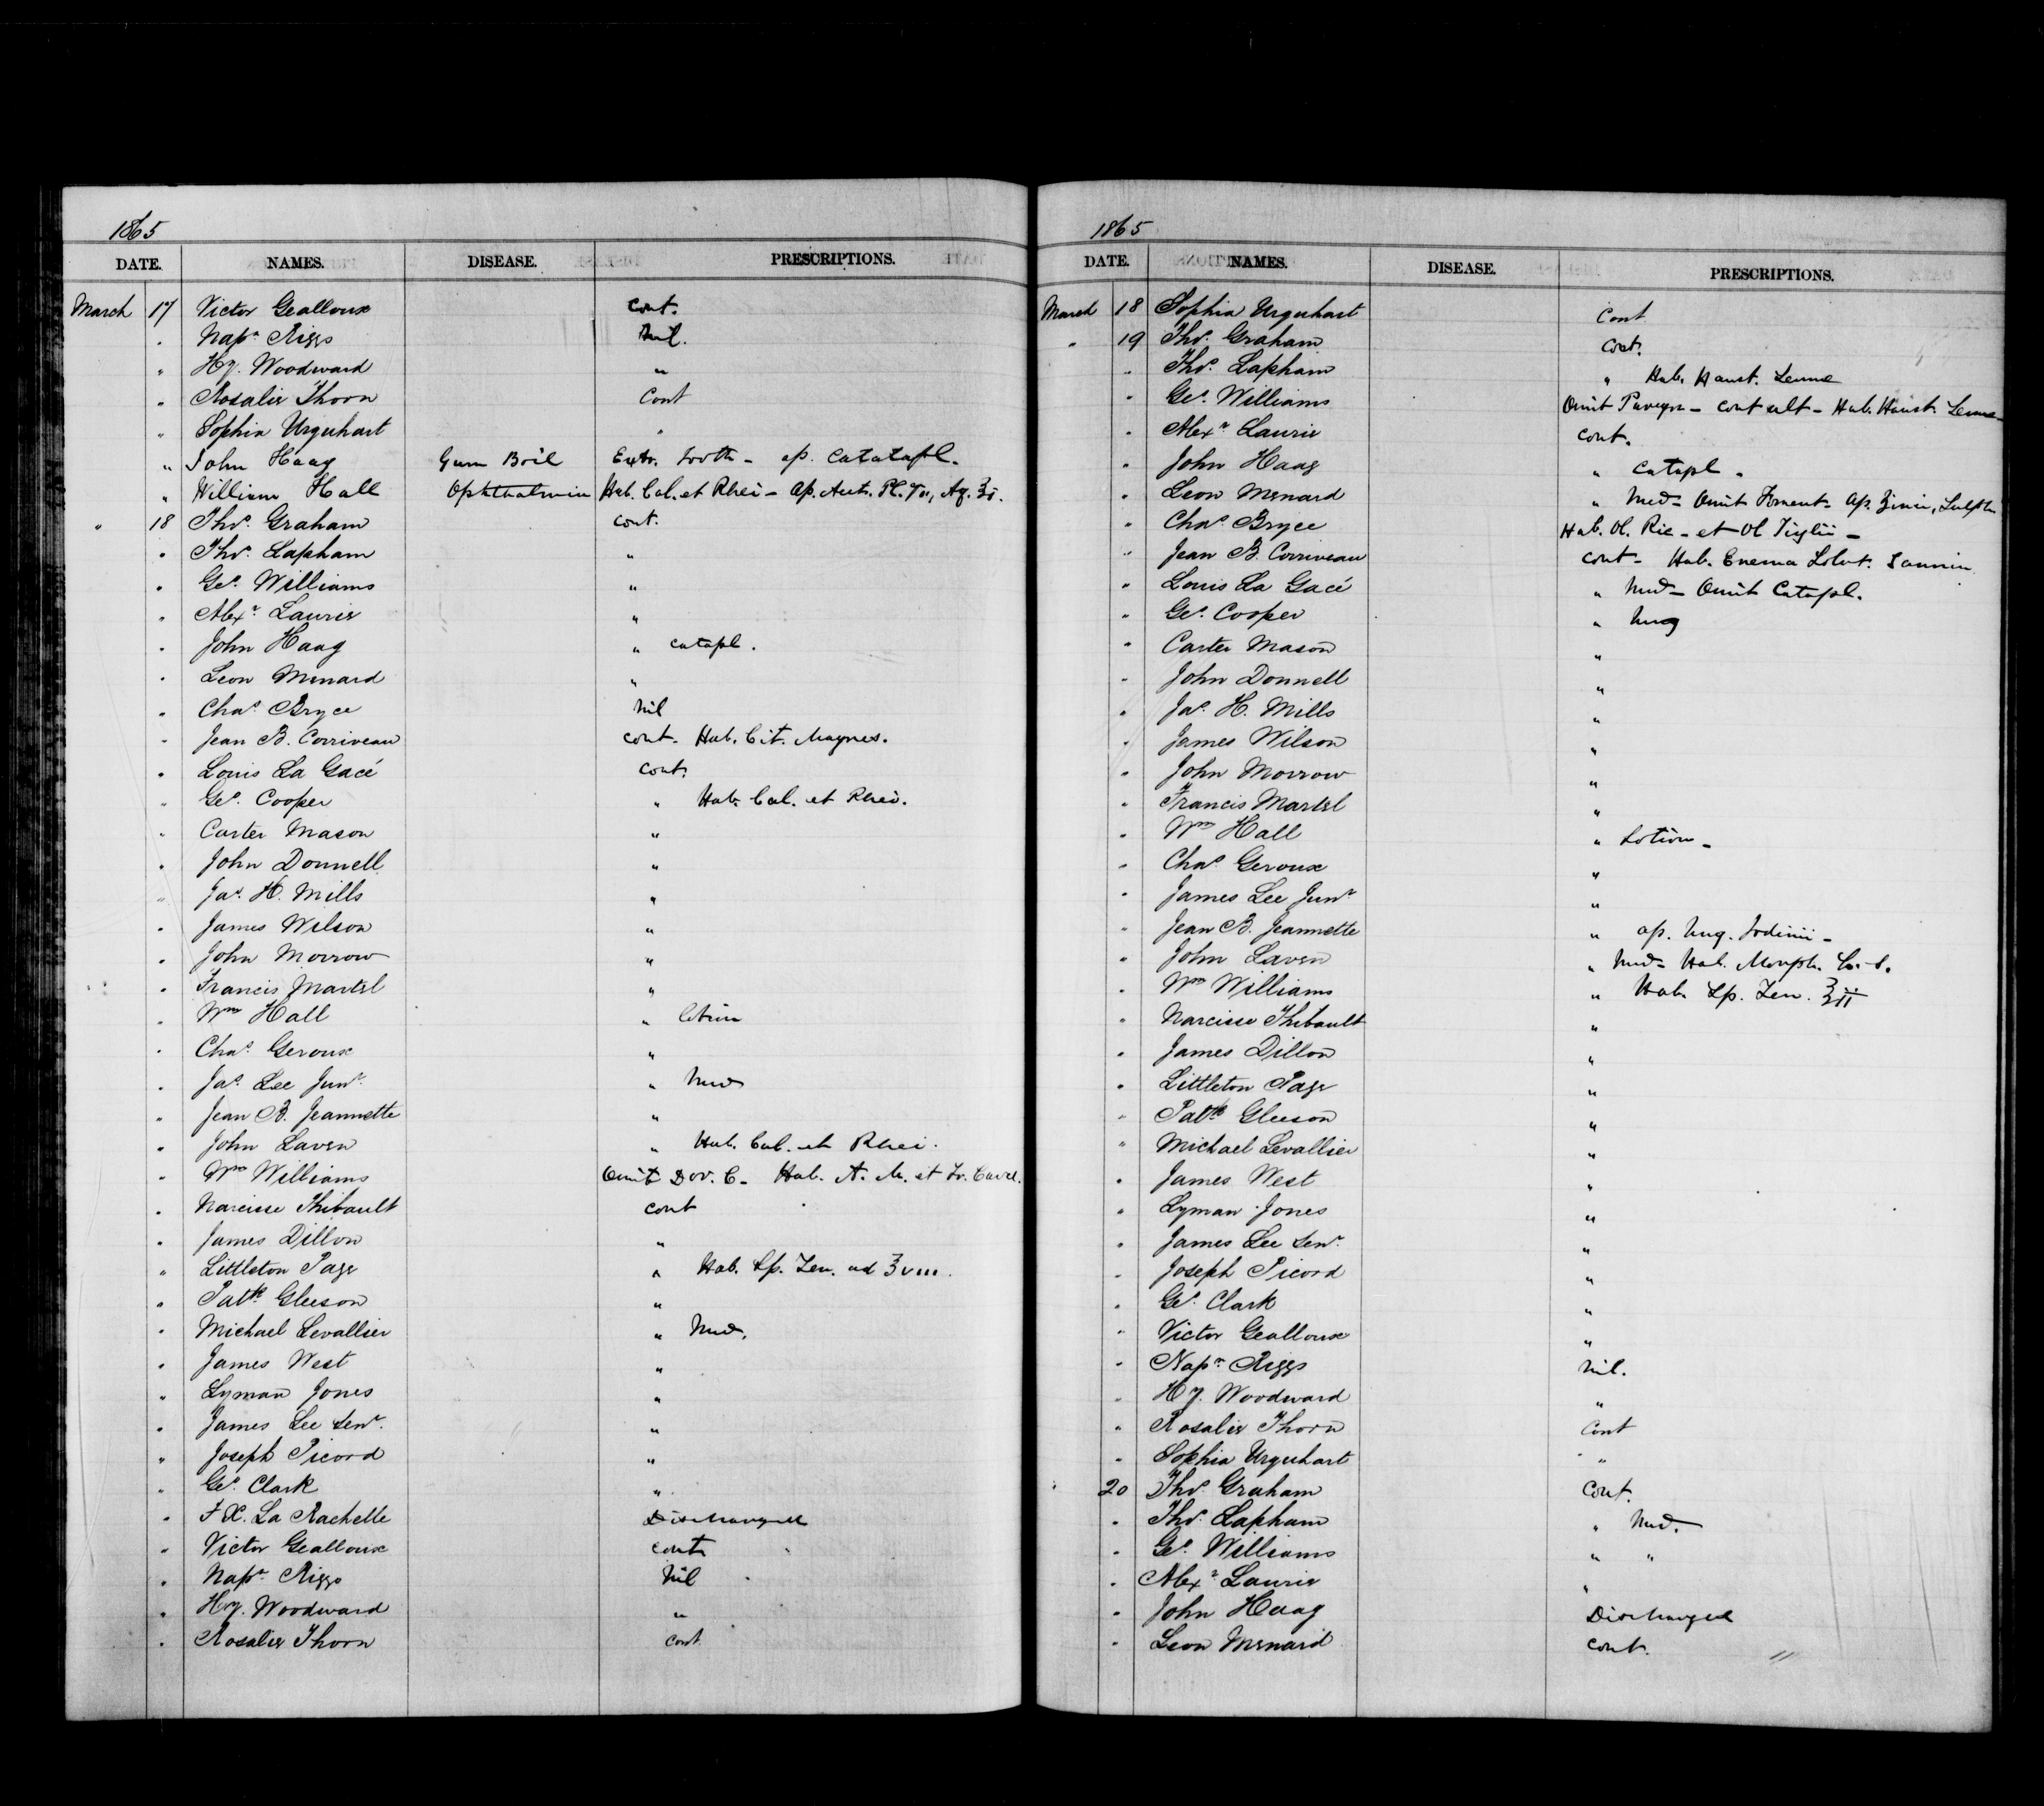 1865
DATE. NAMES. DISEASE. PRESCRIPTIONS.
March 17 Victor Gealloux cont.
" Napn Riggs Nil.
" Hy. Woodward "
" Rosalie Thorn Cont
" Sophia Urquhart "
" John Haag Gum Boil Extr. tooth - ap. Catatapl.
" William Hall Ophthalmia Hab. Cal. et Rhei - Ap. Aut. Pl. Aq. ℥i.
" 18 Thos. Graham cont.
" Thos. Lapham "
" Geo. Williams "
" Alexr. Laurie "
" John Haag " catapl.
" Leon Menard "
" Chas. Bryce Nil
" Jean B. Corriveau cont. Hab. Cit. Magnes.
" Louis La Gacé cont.
" Geo. Cooper " Hab. Cal. et Rhei.
" Carter Mason "
" John Donnell "
" Jas. H. Mills "
" James Wilson "
" John Morrow "
" Francis Martel "
" Wm Hall " lotion
" Chas. Geroux "
" Jas. Lee Junr. " Med
" Jean B. Jeannette "
" John Laven " Hab. Cal. et Rhei.
" Wm Williams Omit Dov. C - Hab. A. M. et
" Narcisse Thibault cont
" James Dillon "
" Littleton Page " Hab. Sp. Ten. ad ℥viii.
" Patk Gleeson "
" Michael Levallier " Med.
" James West "
" Lyman Jones "
" James Lee Senr. "
" Joseph Picord "
" Geo. Clark "
" F X. La Rachelle Discharged
" Victor Gealloux cont
" Napn. Riggs Nil
" Hy. Woodward "
" Rosalie Thorn Cont
1865
DATE. NAMES. DISEASE. PRESCRIPTIONS.
March 18 Sophia Urquhart Cont
" 19 Thos. Graham Cont.
" Thos. Lapham " Hab. Haust. Sennae
" Geo. Williams Omit - cont alt - Hab. Haust. Sennae
" Alexr Laurie cont.
" John Haag " catapl -
" Leon Menard " Med - Omit Foment - Ap. Zinci, Sulph
" Chas. Bryce Hab. Ol. Ric - et Ol Tiglii -
" Jean B. Corriveau cont - Hab. Enema
" Louis La Gacé " Med - Omit Catapl.
" Geo. Cooper " Ung
" Carter Mason "
" John Donnell "
" Jas. H. Mills "
" James Wilson "
" John Morrow "
" Francis Martel "
" Wm Hall " Lotion -
" Chas. Geroux "
" James Lee Junr "
" Jean B. Jeannette " ap. Ung. Iodinii -
" John Laven " Med - Hab. Morph.
" Wm Williams " Hab. Sp. Ten. ℥ii
" Narcisse Thibault "
" James Dillon "
" Littleton Page "
" Patk Gleeson "
" Michael Levallier "
" James West "
" Lyman Jones "
" James Lee Senr. "
" Joseph Picord "
" Geo. Clark "
" Victor Gealloux "
" Napn. Riggs Nil.
" Hy. Woodward "
" Rosalie Thorn Cont
" Sophia Urquhart "
" 20 Thos. Graham Cont.
" Thos. Lapham " Med.
" Geo. Williams " "
" Alexr Laurie "
" John Haag Discharged
" Leon Menard cont.